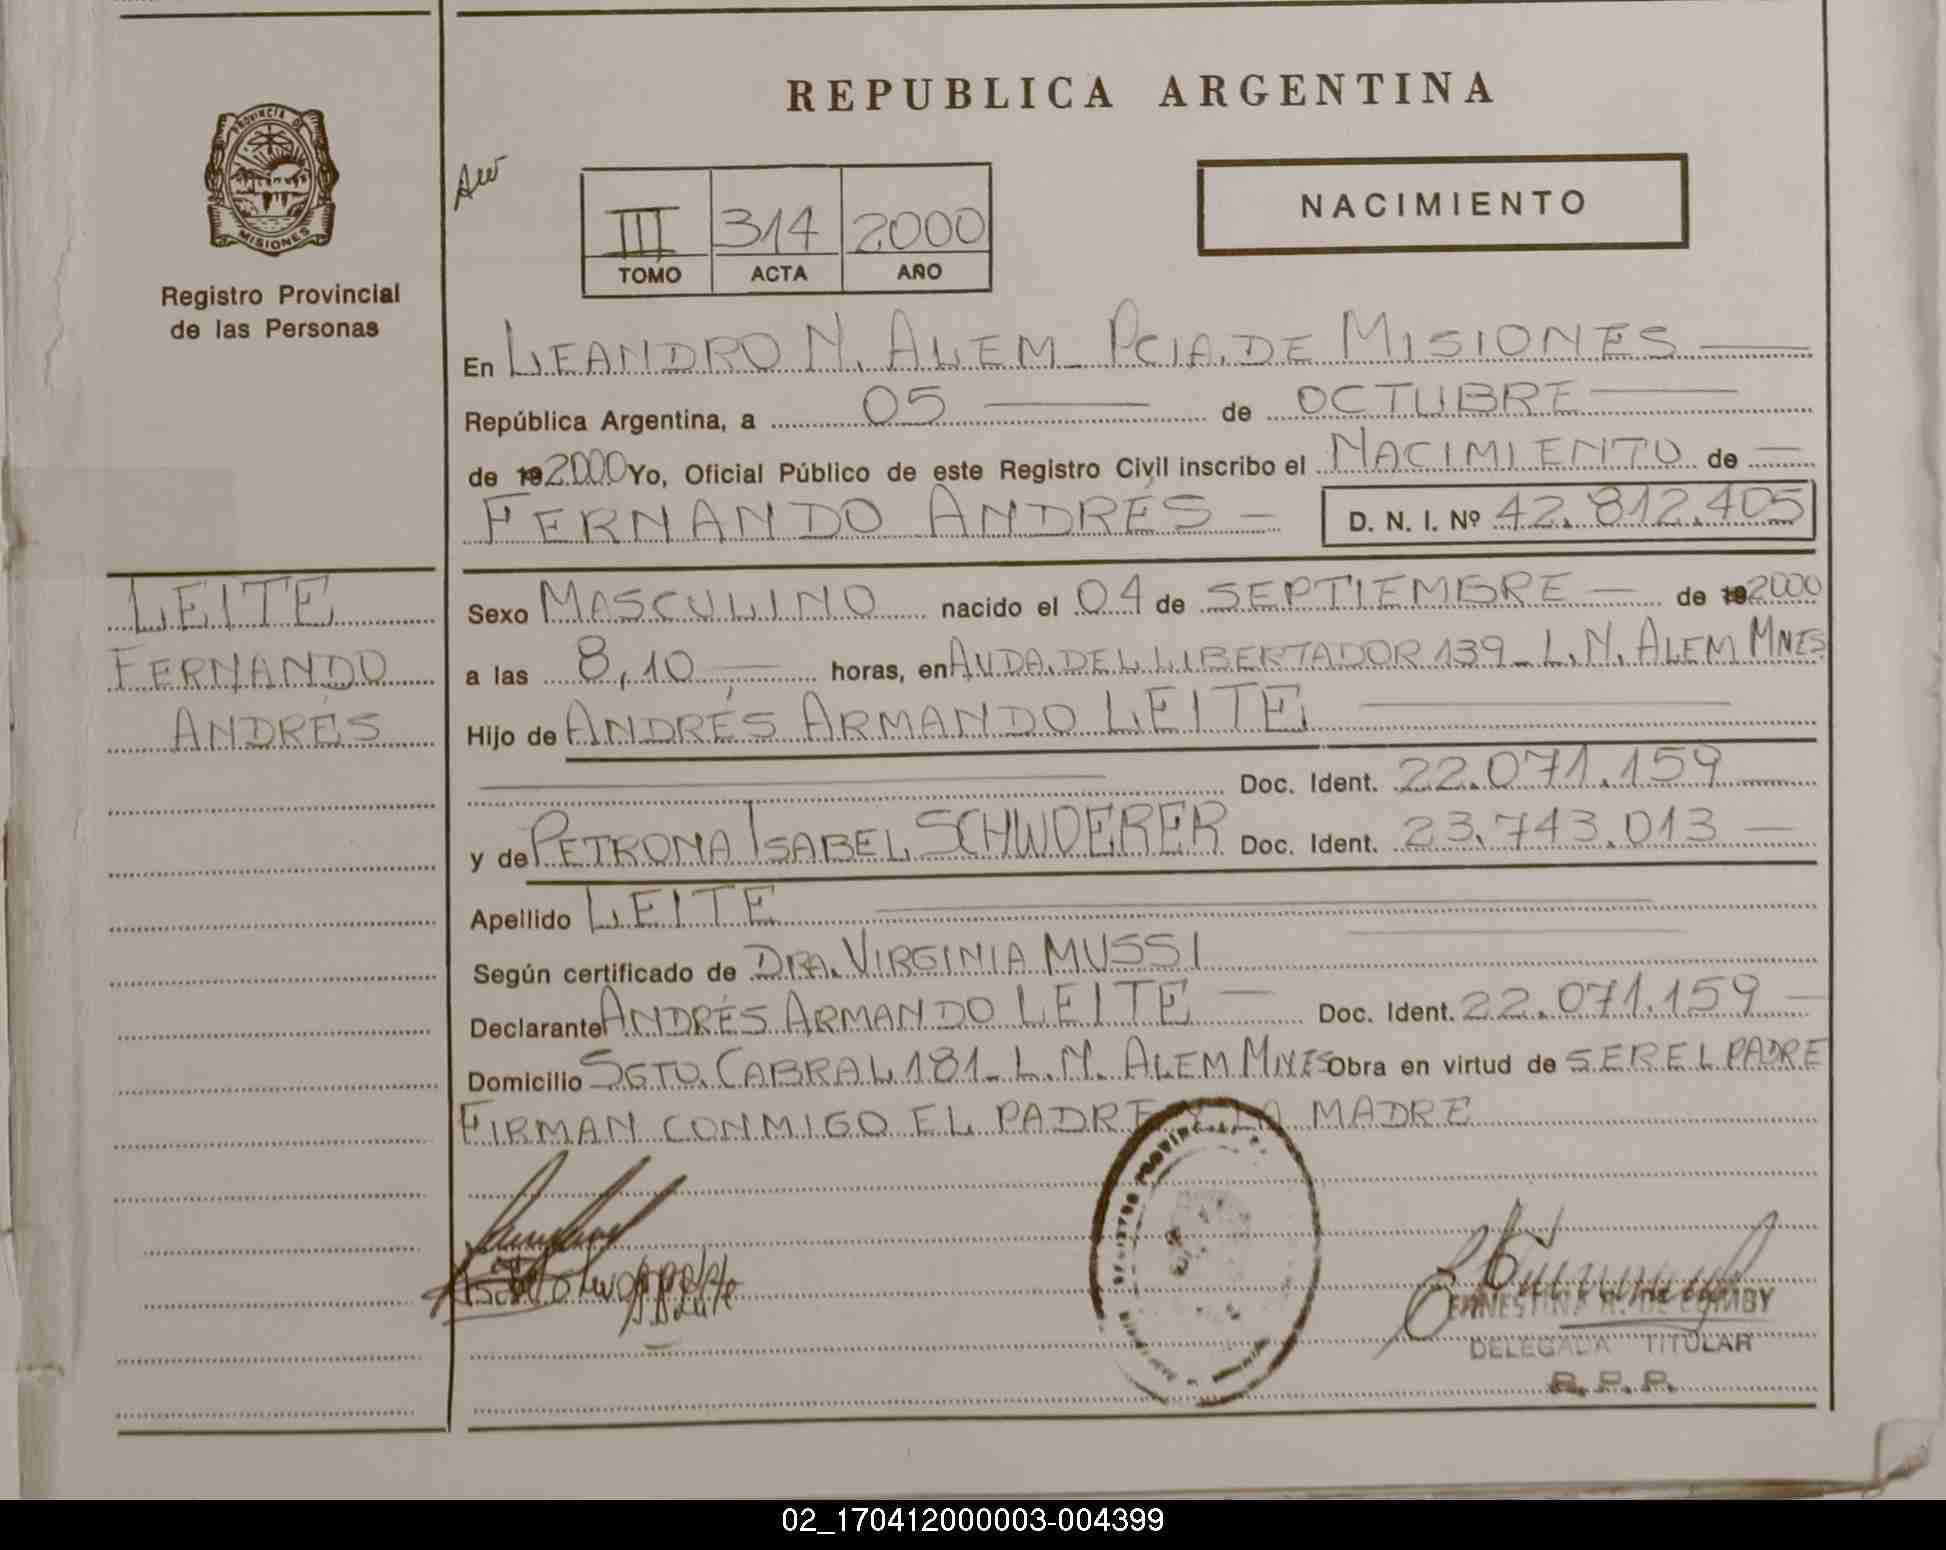 REPUBLICA ARGENTINA
PROVINCIA DE
MISIONES
Registro Provincial
de las Personas
III 314 2000
TOMO ACTA AÑO
NACIMIENTO
En LEANDRO N. ALEM_ PCIA. DE MISIONES
República Argentina, a 05 de OCTUBRE
de 192000 Yo, Oficial Público de este Registro Civil inscribo el NACIMIENTO de
FERNANDO ANDRÉS - D. N. I. Nº 42.812.405
LEITE
FERNANDO
ANDRÉS
Sexo MASCULINO nacido el 04 de SEPTIEMBRE de 192000
a las 8,10 horas, en AVDA. DEL LIBERTADOR 139_ L.N. ALEM MNES
Hijo de ANDRÉS ARMANDO LEITE
Doc. Ident. 22.071.159
y de PETRONA ISABEL SCHWDERER Doc. Ident. 23.743.013
Apellido LEITE
Según certificado de DRA. VIRGINIA MUSSI
Declarante ANDRÉS ARMANDO LEITE Doc. Ident. 22.071.159
Domicilio SGTO. CABRAL 181_ L.N. ALEM MNES Obra en virtud de SER EL PADRE
FIRMAN CONMIGO EL PADRE Y LA MADRE
DELEGADA TITULAR
R.P.P.
02_170412000003-004399